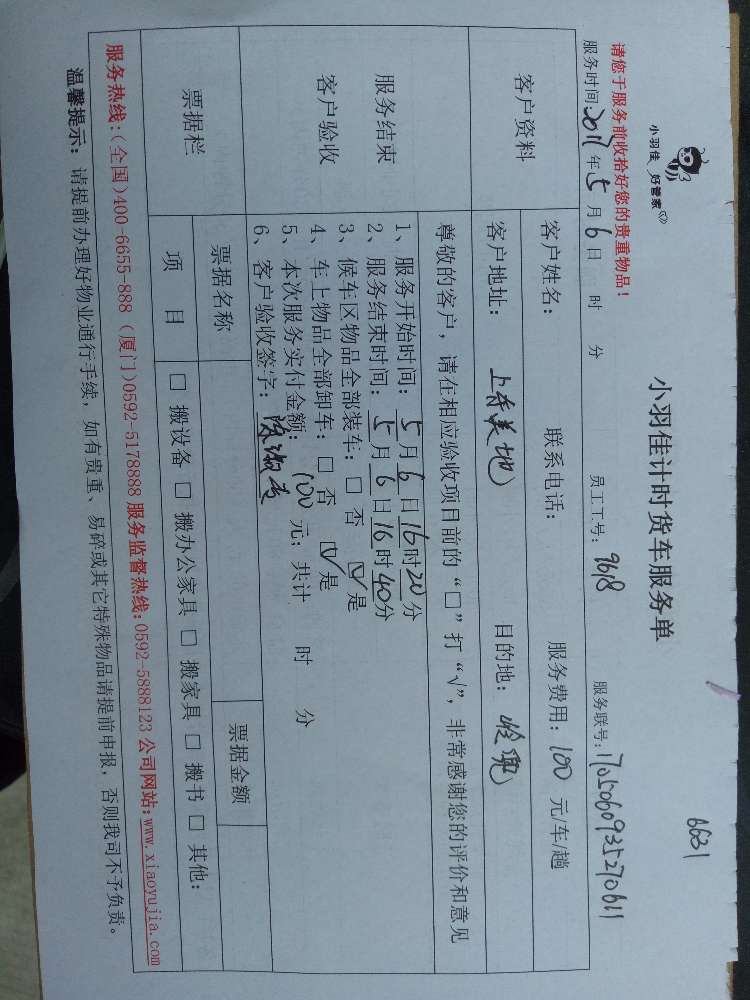 6631
小羽佳 好管家
小羽佳计时货车服务单
请您于服务前收拾好您的贵重物品！
服务时间：2017年5月6日 时 分 员工工号：9618 服务联号：170506093527061
客户资料
客户姓名： 联系电话： 服务费用：100 元/车/趟
客户地址： 上东美地 目的地：
服务结束
客户验收
尊敬的客户，请在相应验收项目前的“□”打“√”，非常感谢您的评价和意见
1、服务开始时间：5月6日16时20分
2、服务结束时间：5月6日16时40分
3、候车区物品全部装车：□ 否 ☑ 是
4、车上物品全部卸车：□ 否 ☑ 是
5、本次服务实付金额：100 元；共计 时 分
6、客户验收签字：
票据栏
票据名称 票据金额
项 目 □ 搬设备 □ 搬办公家具 □ 搬家具 □ 搬书 □ 其他：
服务热线：(全国)400-6655-888 (厦门)0592-5178888 服务监督热线：0592-5888123 公司网站：www.xiaoyujia.com
温馨提示：请提前办理好物业通行手续，如有贵重、易碎或其它特殊物品请提前申报，否则我司不予负责。